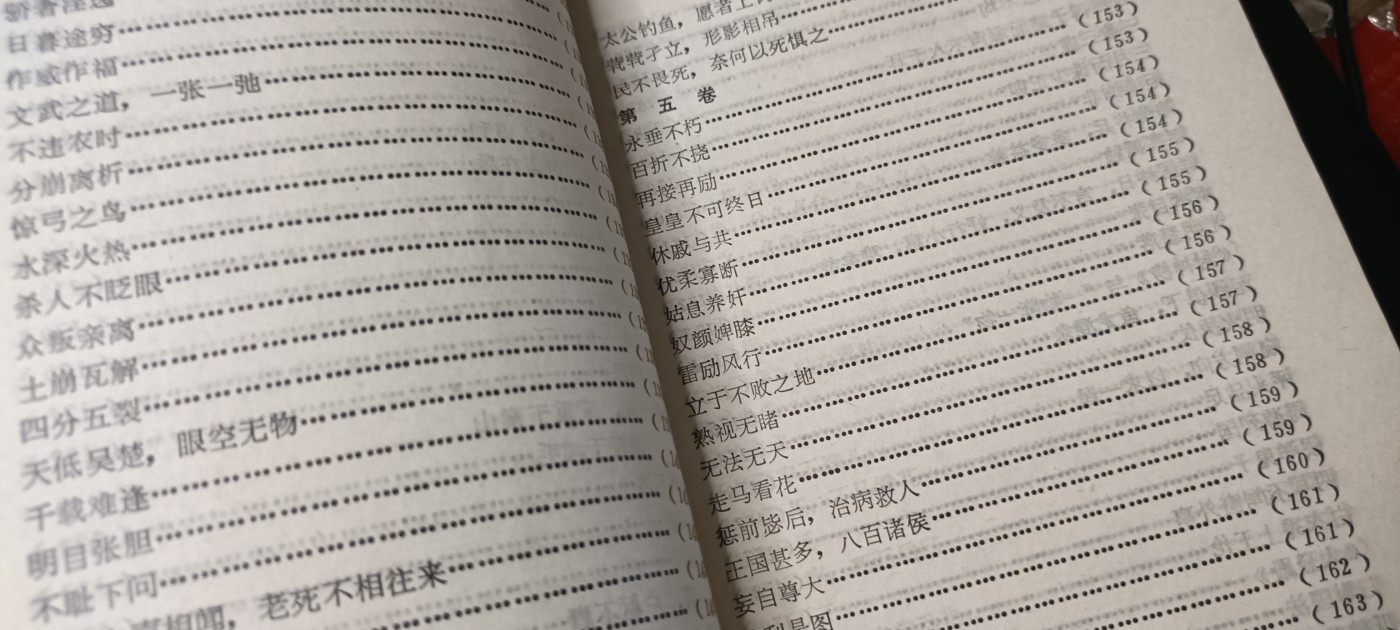 骄奢淫逸
日暮途穷……
作威作福……
文武之道，一张一弛……
不违农时……
分崩离析……
惊弓之鸟……
水深火热……
杀人不眨眼……
众叛亲离……
土崩瓦解……
四分五裂……
天低吴楚，眼空无物……
千载难逢……
明目张胆……
不耻下问……
相闻，老死不相往来……
太公钓鱼，愿者上
茕茕孑立，形影相吊……
民不畏死，奈何以死惧之……
第五卷
永垂不朽……（153）
百折不挠……（153）
再接再励……（154）
皇皇不可终日……（154）
休戚与共……（154）
优柔寡断……（155）
姑息养奸……（155）
奴颜婢膝……（156）
雷励风行……（156）
立于不败之地……（157）
熟视无睹……（157）
无法无天……（158）
走马看花……（158）
惩前毖后，治病救人……（159）
王国甚多，八百诸侯……（159）
妄自尊大……（160）
利是图……（161）
（161）
（162）
（163）